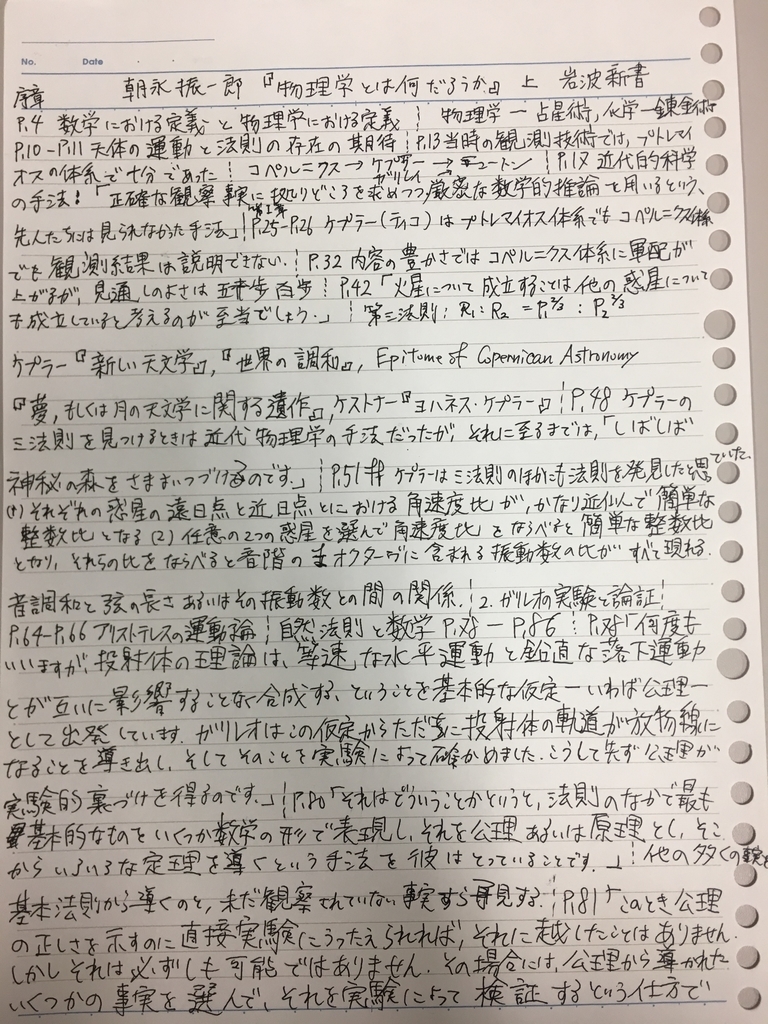 No. Date
朝永振一郎『物理学とは何だろうか』上 岩波新書
序章
P.4 数学における定義と物理学における定義 ¦ 物理学ー占星術,化学ー錬金術
P.10-P.11 天体の運動と法則の存在の期待 ¦ P.13 当時の観測技術では,プトレマイ
オスの体系で十分であった ¦ コペルニクス→ケプラー→ニュートン ¦ P.17 近代的科学
ガリレイ
の手法:「正確な観察事実に拠りどころを求めつつ,厳密な数学的推論を用いるという、
第I章
先人たちには見られなかった手法」¦ P.25-P.26 ケプラー(ティコ)はプトレマイオス体系でもコペルニクス体系
でも観測結果は説明できない. ¦ P.32 内容の豊かさではコペルニクス体系に軍配が
上がるが,見通しのよさは五十歩百歩 ¦ P.42「火星について成立することは他の惑星について
も成立していると考えるのが至当でしょう.」 ¦ 第三法則: R₁:R₂ = P₁^2/3 : P₂^2/3
ケプラー『新しい天文学』,『世界の調和』, Epitome of Copernican Astronomy
『夢,もしくは月の天文学に関する遺作』,ケストナー『ヨハネス・ケプラー』 ¦ P.48 ケプラーの
三法則を見つけるときは近代物理学の手法だったが,それに至るまでは,「しばしば
神秘の森をさまよいつづけるのです。」 ¦ P.51 ケプラーは三法則のほかにも法則を発見したと思っていた.
(1)それぞれの惑星の遠日点と近日点とにおける角速度比が,かなり近似で簡単な
整数比となる (2) 任意の2つの惑星を選んで角速度比をならべると簡単な整数比
となり,それらの比をならべると音階の オクターヴに含まれる振動数の比がすべて現れる.
音調和と弦の長さあるいはその振動数との間の関係. ¦ 2. ガリレオの実験と論証 ¦
P.64-P.66 アリストテレスの運動論 ¦ 自然法則と数学 P.78-P.86 ¦ P.78「何度も
いいますが,投射体の理論は,等速な水平運動と鉛直な落下運動
とが互いに影響することなく合成する,ということを基本的な仮定ーいわば公理ー
として出発しています.ガリレオはこの仮定からただちに投射体の軌道が放物線に
なることを導き出し,そしてそのことを実験によって確かめました.こうして先ず公理が
実験的裏づけを得るのです.」¦ P.80「それはどういうことかというと,法則のなかで最も
基本的なものをいくつか数学の形で表現し,それを公理あるいは原理とし,そこ
からいろいろな定理を導くという手法を彼はとっていることです.」 ¦ 他の多くの事実を
基本法則から導くのと,未だ観察されていない事実すら予見する. ¦ P.81「このとき公理
の正しさを示すのに直接実験にうったえられれば,それに越したことはありません.
しかしそれは必ずしも可能ではありません.その場合には,公理から導かれた
いくつかの事実を選んで,それを実験によって検証するという仕方で